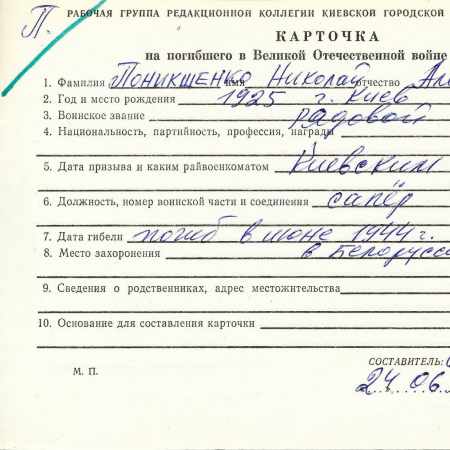 П.
РАБОЧАЯ ГРУППА РЕДАКЦИОННОЙ КОЛЛЕГИИ КИЕВСКОЙ ГОРОДСКОЙ
КАРТОЧКА
на погибшего в Великой Отечественной войне
1. Фамилия Поникщенко имя Николай отчество Але
2. Год и место рождения 1925 г. Киев
3. Воинское звание рядовой
4. Национальность, партийность, профессия, награды
5. Дата призыва и каким райвоенкоматом Киевским
6. Должность, номер воинской части и соединения сапёр
7. Дата гибели погиб в июне 1944 г.
8. Место захоронения в Белорусс
9. Сведения о родственниках, адрес местожительства
10. Основание для составления карточки
СОСТАВИТЕЛЬ:
М. П.
24.06.